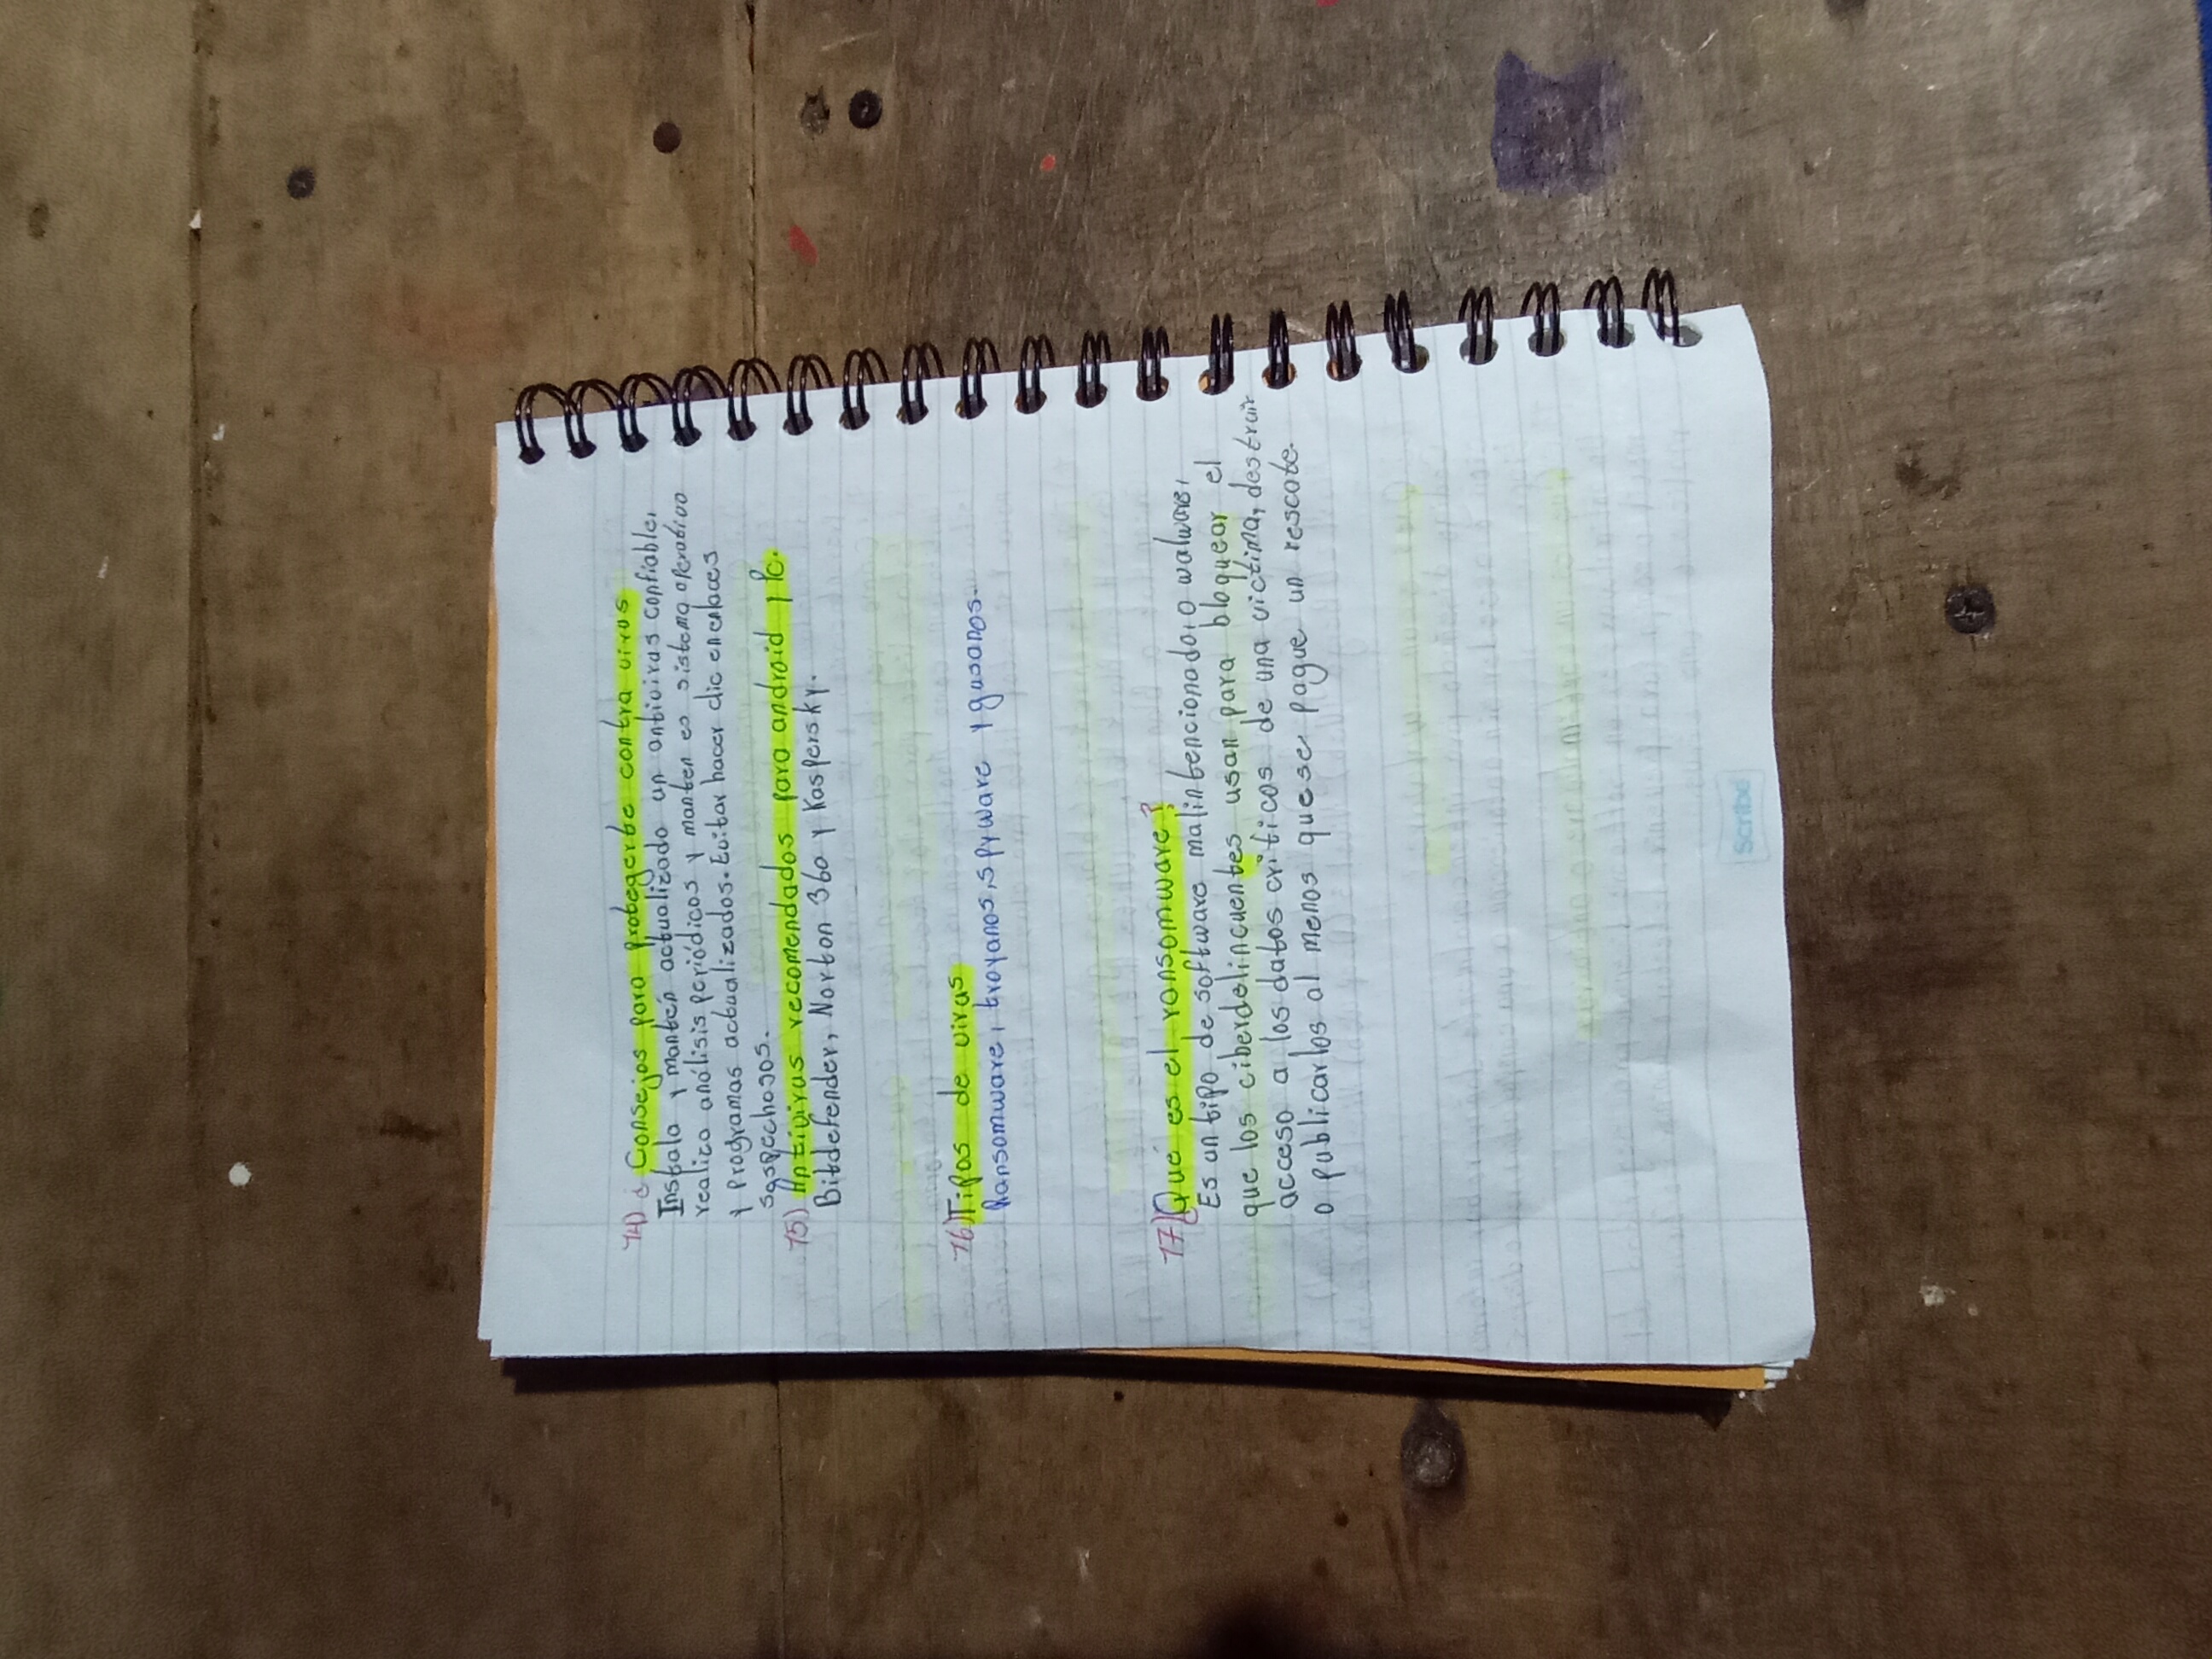 14) ¿Consejos para protegerte contra virus
Instala y mantén actualizado un antivirus confiable,
realiza análisis periódicos y manten es sistema operativo
y programas actualizados. Evitar hacer clic en enlaces
sospechosos.
15) Antivirus recomendados para android y Pc.
Bitdefender, Norton 360 y Kaspersky.
16) Tipos de virus
Ransomware, troyanos, spyware y gusanos.
17) ¿Qué es el ransomware?
Es un tipo de software malintencionado, o walware,
que los ciberdelincuentes usan para bloquear el
acceso a los datos críticos de una victima, destruir
o publicarlos al menos que se pague un rescate.
Scribe